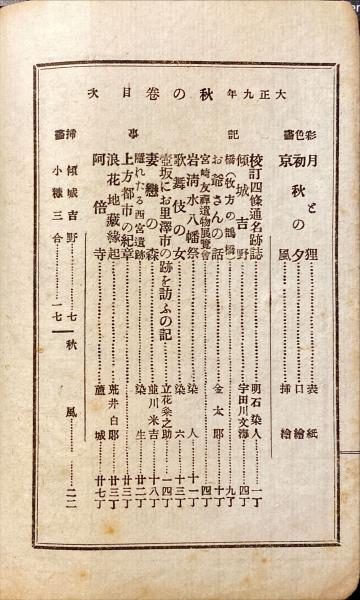 大正九年 秋の巻 目次
彩色畫
月と狸……表紙
初秋の夕……口繪
京風……挿繪
記事
校訂四條通名跡誌……明石染人……一丁
傾城吉野……宇田川文海……四丁
橋(牧方の鵲橋)……九丁
お爺さんの話……金太郎……十丁
宮崎友禪遺物展覽會……四丁
岩淸水八幡祭……染人……十一丁
歌舞伎の女……染六……十三丁
壺坂にお里澤市の跡を訪ふの記……立花粂之助……一四丁
妻戀の森……並川米吉……十八丁
隱れたる西宮遺跡……染生……廿二丁
上方都市の紀章……廿三丁
浪花地藏緣起……荒井白郎……廿三丁
阿倍寺……薫城……廿七丁
挿畫
傾城吉野……七
秋風……二二
小糠三合……一七